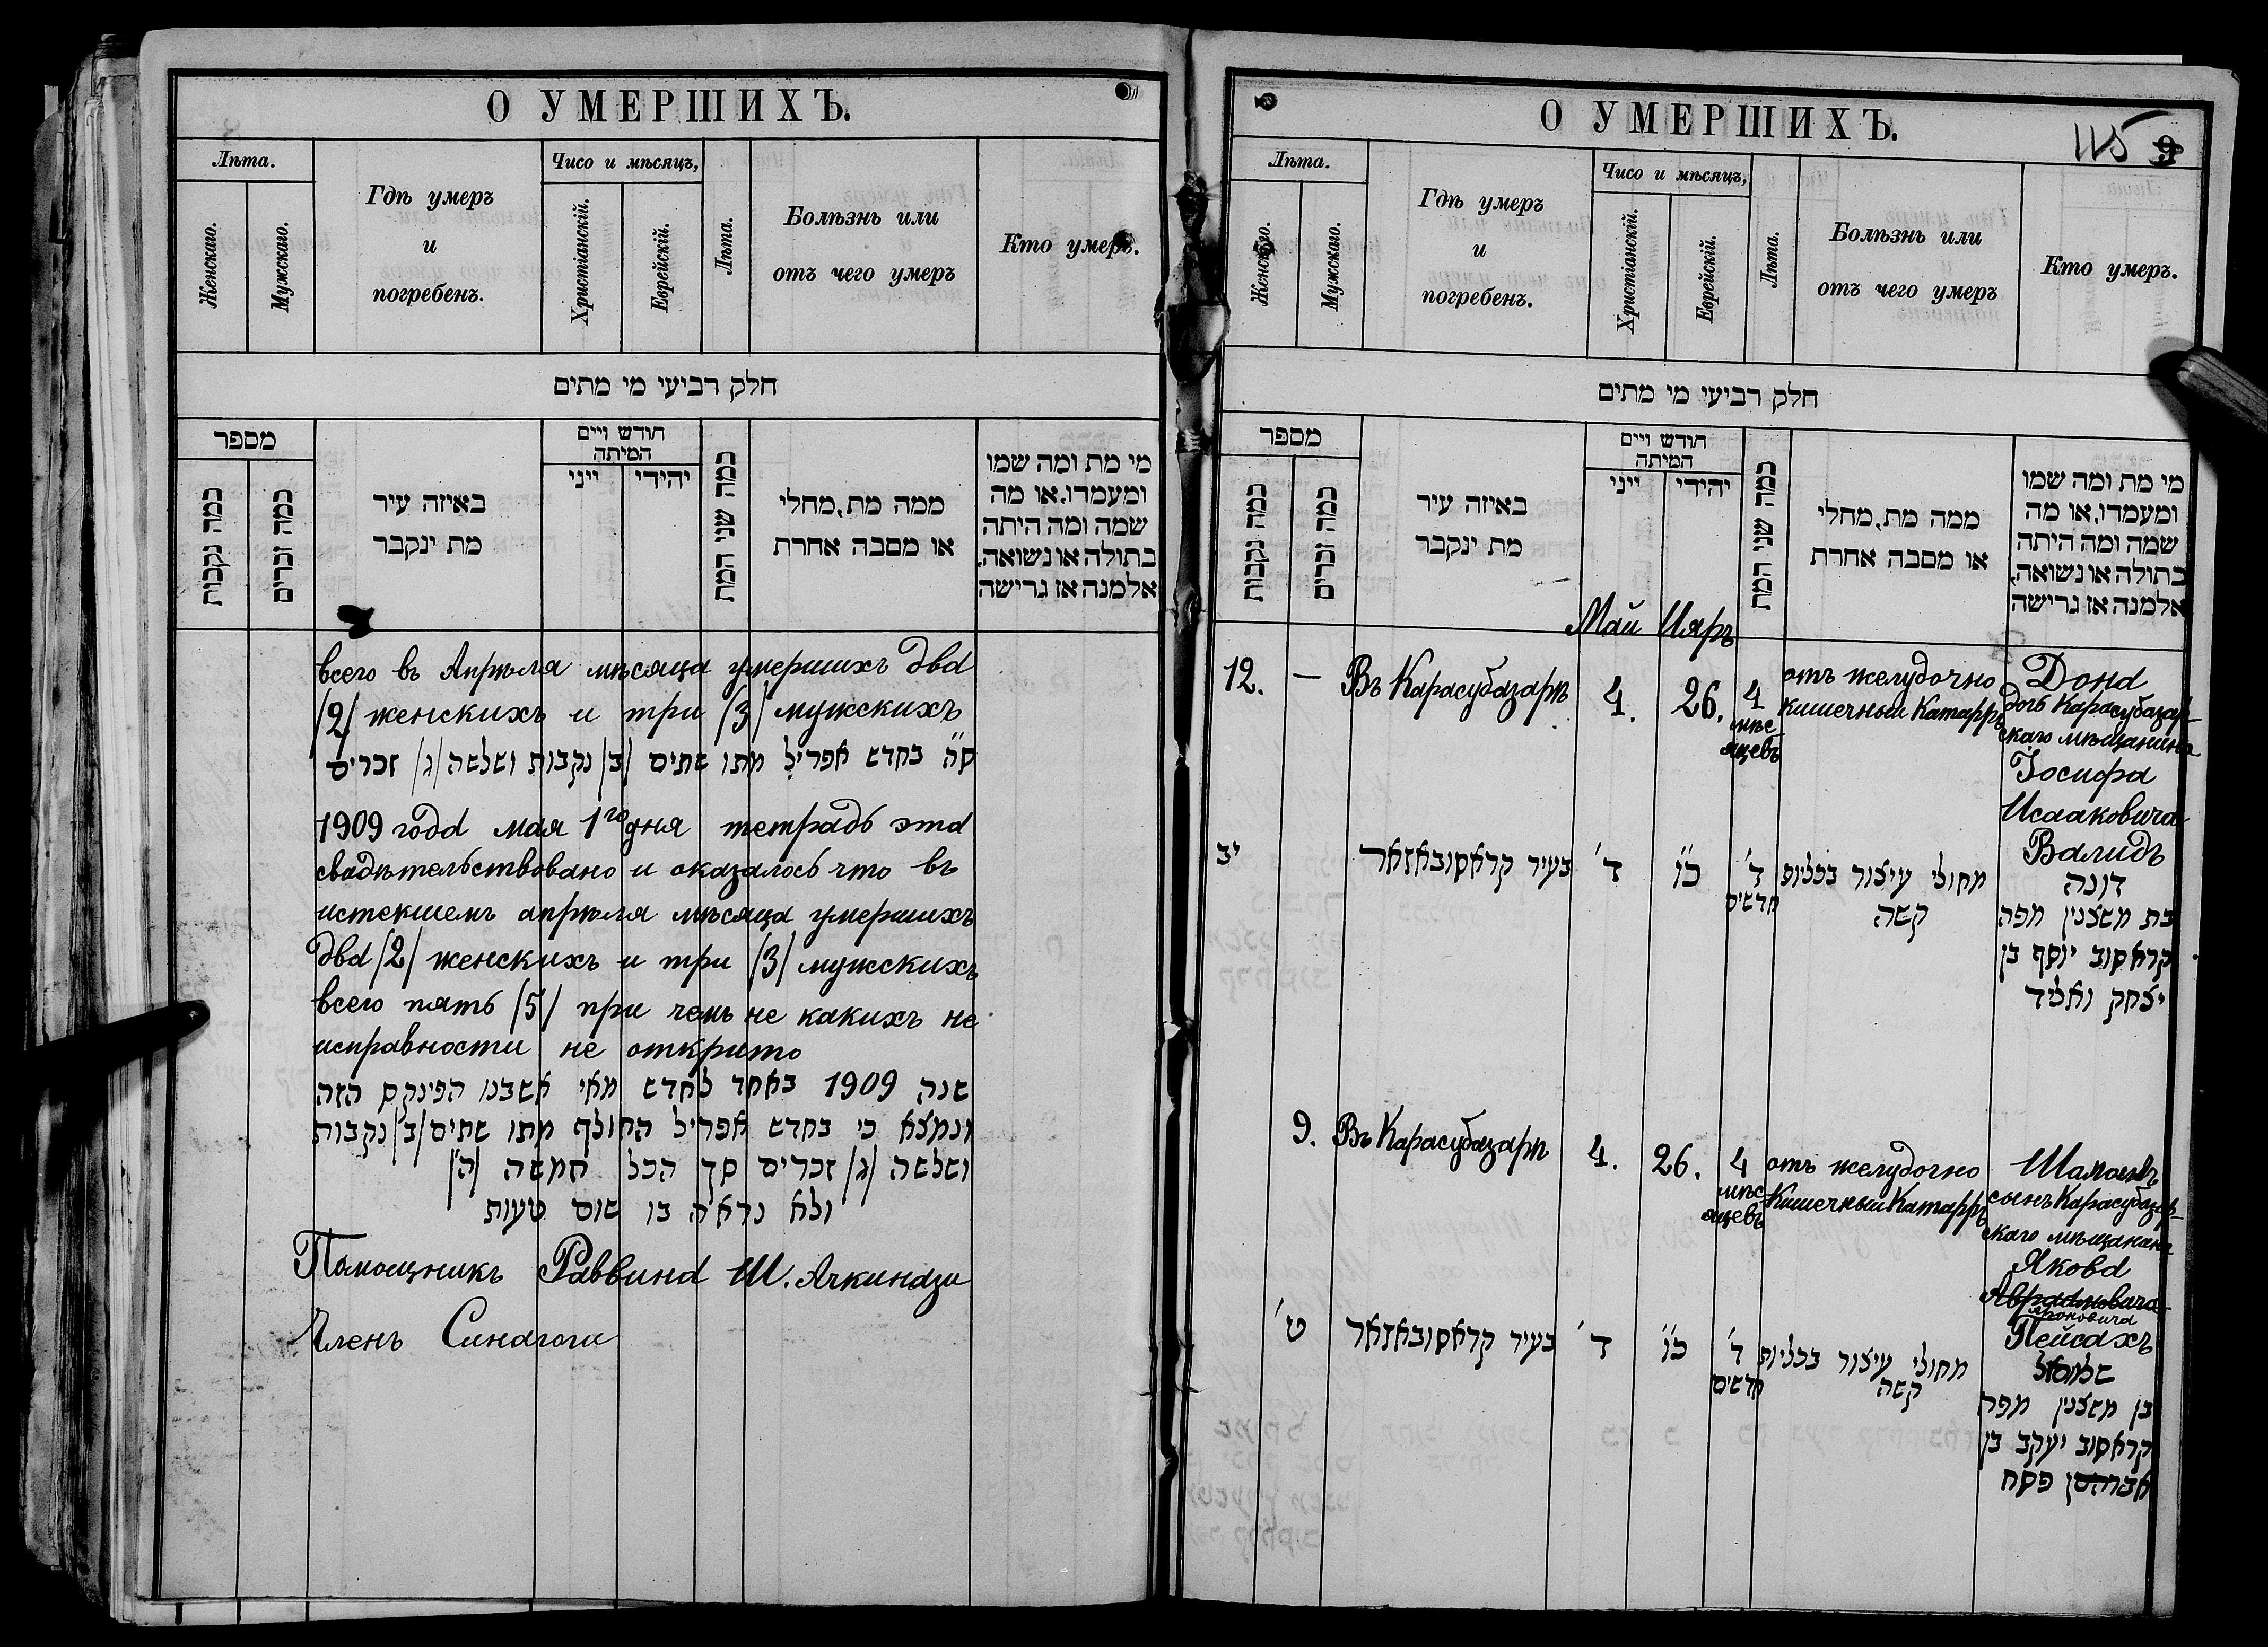 О УМЕРШИХЪ.
Лѣта.
Женскаго.
Мужскаго.
Гдѣ умеръ
и
погребенъ.
Чисо и мѣсяцъ,
Христіанскій.
Еврейскій.
Лѣта.
Болѣзнь или
отъ чего умеръ
Кто умеръ.
חלק רביעי מי מתים
מספר
כמה נקבות
כמה זכרים
באיזה עיר
מת ינקבר
חודש ויים
המיתה
ייני
יהידי
כמה שני המת
ממה מת, מחלי
או מסבה אחרת
מי מת ומה שמו
ומעמדו, או מה
שמה ומה היתה
בתולה או נשואה,
אלמנה אז גרישה
всего въ Апрѣля мѣсяца умершихъ два
/2/ женскихъ и три /3/ мужскихъ
ס״ה בחדש אפריל מתו שתים /ב/ נקבות ושלשה /ג/ זכרים
1909 года мая 1го дня тетрадь эта
свадѣтельствовано и оказалось что въ
истекшемъ апрѣля мѣсяца умершихъ
два /2/ женскихъ и три /3/ мужскихъ
всего пять /5/ при чемъ не какихъ не
исправности не открито
שנה 1909 באחד לחדש מאי אשבנו הפינקס הזה
ונמצא כי בחדש אפריל החולף מתו שתים /ב/ נקבות
ושלשה /ג/ זכרים סך הכל חמשה /ה/
ולא נראה בו שום טעות
Помощникъ Раввина Ш. Ачкинази
Членъ Синагоги
О УМЕРШИХЪ.
115
9
Лѣта.
Женскаго.
Мужскаго.
Гдѣ умеръ
и
погребенъ.
Чисо и мѣсяцъ,
Христіанскій.
Еврейскій.
Лѣта.
Болѣзнь или
отъ чего умеръ
Кто умеръ.
חלק רביעי מי מתים
מספר
כמה נקבות
כמה זכרים
באיזה עיר
מת ינקבר
חודש ויים
המיתה
ייני
יהידי
כמה שני המת
ממה מת, מחלי
או מסבה אחרת
מי מת ומה שמו
ומעמדו, או מה
שמה ומה היתה
בתולה או נשואה,
אלמנה אז גרישה
Май Ияръ
12. — Въ Карасубазарѣ 4. 26. 4
мѣс
яцевъ
отъ желудочно
кишечный Катарръ
Дона
дочь Карасубазар-
скаго мѣщанина
Іосифа
Исааковича
Валидъ
יב
בעיר קראסובאזאר
ד׳
כ״ו
ד׳
חדשים
מחולי עיצור בכליות
קשה
דונה
בת משצנין מפה
קראסוב יוסף בן
יצחק ואליד
9. Въ Карасубазарѣ 4. 26. 4
мѣс
яцевъ
отъ желудочно
Кишечный Катарръ
сынъ Карасубазар-
скаго мѣщанина
Якова
Авраамовича
Ароновича
Пейсахъ
ט׳
בעיר קראסובאזאר
ד׳
כ״ו
ד׳
חדשים
מחולי עיצור בכליות
קשה
בן משצנין מפה
קראסוב יעקב בן
פסח